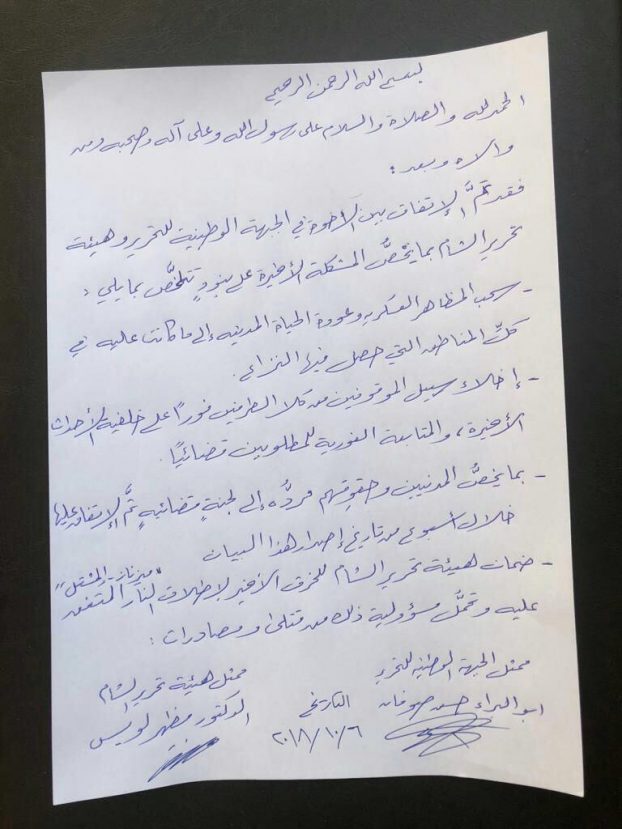 بسم الله الرحمن الرحيم
الحمد لله والصلاة والسلام على رسول الله وعلى آله وصحبه ومن
والاه وبعد:
فقد تمَّ الإتفاق بين الأخوة في الجبهة الوطنية للتحرير وهيئة
تحرير الشام بما يخصُّ المشكلة الأخيرة على بنودٍ تتلخَّص بما يلي:
- سحب المظاهر العسكرية وعودة الحياة المدنية إلى ما كانت عليه في
كلِّ المناطق التي حصل فيها النزاع.
- إخلاء سبيل الموقوفين من كلا الطرفين فوراً على خلفية الأحداث
الأخيرة، والمتابعة الفورية للمطلوبين قضائيًّا.
- بما يخصُّ المدنيين وحقوقهم مردُّه إلى لجنةٍ قضائيةٍ تمَّ الإتفاق عليها
خلال أسبوع من تاريخ إصدار هذا البيان
- ضمان هيئة تحرير الشام للخرق الأخير لإطلاق النار المتفق
عليه وتحمُّل مسؤولية ذلك من قتلى ومصادرات:
ممثل الجبهة الوطنية للتحرير
ممثل هيئة تحرير الشام
ابو البراء حسن صوفان
التاريخ
الدكتور مظهر لويس
٢٠١٨/١٠/٦